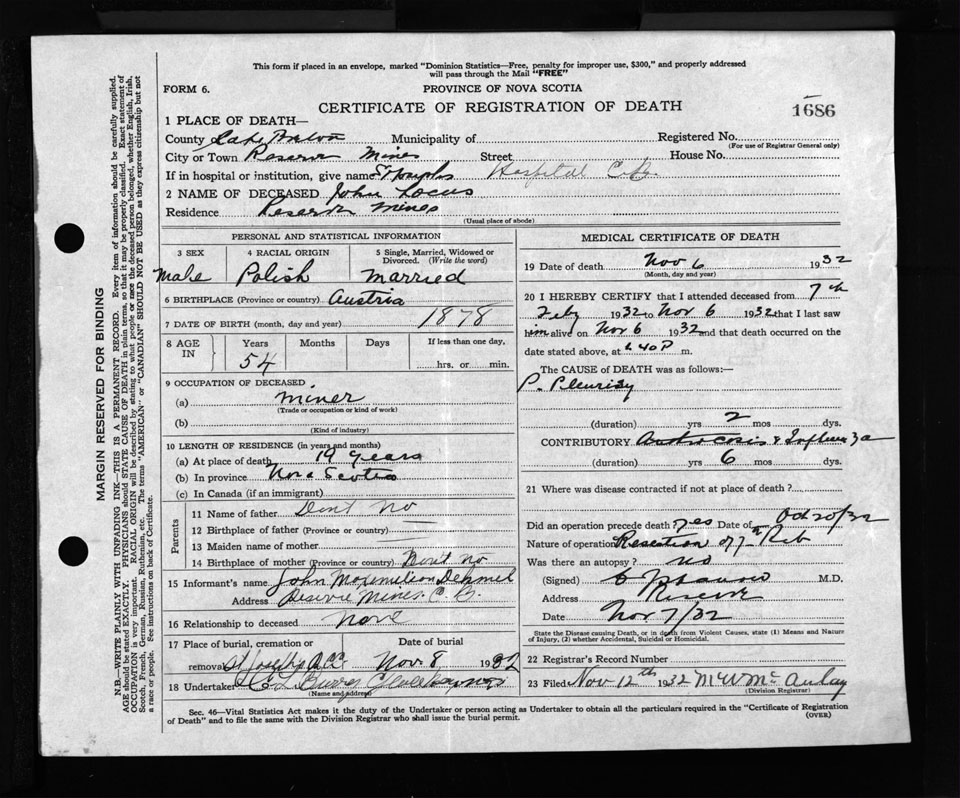 This form if placed in an envelope, marked "Dominion Statistics—Free, penalty for improper use, $300," and properly addressed
will pass through the Mail "FREE"
FORM 6. PROVINCE OF NOVA SCOTIA
CERTIFICATE OF REGISTRATION OF DEATH 1686
1 PLACE OF DEATH—
County Cape Breton Municipality of Registered No.
(For use of Registrar General only)
City or Town Reserve Mines Street House No.
If in hospital or institution, give name St Josephs Hospital C.B.
2 NAME OF DECEASED John Locus
Residence Reserve Mines
(Usual place of abode)
PERSONAL AND STATISTICAL INFORMATION
3 SEX 4 RACIAL ORIGIN 5 Single, Married, Widowed or Divorced. (Write the word)
Male Polish Married
6 BIRTHPLACE (Province or country) Austria
7 DATE OF BIRTH (month, day and year) 1878
8 AGE IN Years Months Days If less than one day,
54 hrs. or min.
9 OCCUPATION OF DECEASED
(a) Miner
(Trade or occupation or kind of work)
(b)
(Kind of industry)
10 LENGTH OF RESIDENCE (in years and months)
(a) At place of death 19 years
(b) In province Nova Scotia
(c) In Canada (if an immigrant)
Parents
11 Name of father Dont No
12 Birthplace of father (Province or country)
13 Maiden name of mother
14 Birthplace of mother (Province or country) Dont No
15 Informant's name John Maximilian Dehmel
Address Reserve Mines. C. B.
16 Relationship to deceased None
17 Place of burial, cremation or Date of burial
removal St Josephs Nov. 8 1932
18 Undertaker
(Name and address)
MEDICAL CERTIFICATE OF DEATH
19 Date of death Nov 6 1932
(Month, day and year)
20 I HEREBY CERTIFY that I attended deceased from 7th
Feby 1932 to Nov 6 1932 that I last saw
him alive on Nov 6 1932 and that death occurred on
date stated above, at 40 P m.
The CAUSE of DEATH was as follows:—
P. Pleurisy
(duration) yrs 2 mos dys.
CONTRIBUTORY Anthrocosis & Influenza
(duration) yrs 6 mos dys.
21 Where was disease contracted if not at place of death?
Did an operation precede death? Yes Date of Oct 20/32
Nature of operation Resection of 7th Rib
Was there an autopsy? no
(Signed) M.D.
Address Reserve
Date Nov 7/32
State the Disease causing Death, or in death from Violent Causes, state (1) Means and Nature
of Injury, and (2) whether Accidental, Suicidal or Homicidal.
22 Registrar's Record Number
23 Filed Nov 12th 1932 McAulay
(Division Registrar)
Sec. 46—Vital Statistics Act makes it the duty of the Undertaker or person acting as Undertaker to obtain all the particulars required in the "Certificate of Registration
of Death" and to file the same with the Division Registrar who shall issue the burial permit. (OVER)
MARGIN RESERVED FOR BINDING
N.B.—WRITE PLAINLY WITH UNFADING INK—THIS IS A PERMANENT RECORD. Every item of information should be carefully supplied.
AGE should be stated EXACTLY. PHYSICIANS should STATE CAUSE OF DEATH in plain terms, so that it may be properly classified. Exact statement of
OCCUPATION is very important. RACIAL ORIGIN will be described by stating to what people or race the deceased person belonged, whether English, Irish,
Scotch, French, German, Russian, Ruthenian, etc. The terms "AMERICAN" or "CANADIAN" SHOULD NOT BE USED as they express citizenship but not
a race or people. See instructions on back of Certificate.